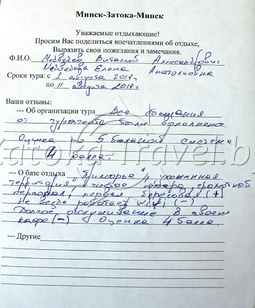 Минск-Затока-Минск
Уважаемые отдыхающие!
Просим Вас поделиться впечатлениями об отдыхе,
Выразить свои пожелания и замечания.
Ф.И.О. Медведев Виталий Александрович
Медведева Елена Анатольевна
Сроки тура: с 1 августа 2014г.
по 11 августа 2014г.
Ваши отзывы:
--- Об организации тура Все обещания
от турагенства были выполнены.
Оценка по 5 бальной системе
4 балла.
--- О базе отдыха "Приморье" ухоженная
территория, чистые номера, приятный
персонал, первая береговая (+)
Не везде работает wi-fi (-)
Долгое обслуживание в
кафе (-) Оценка 4 балла.
--- Другие